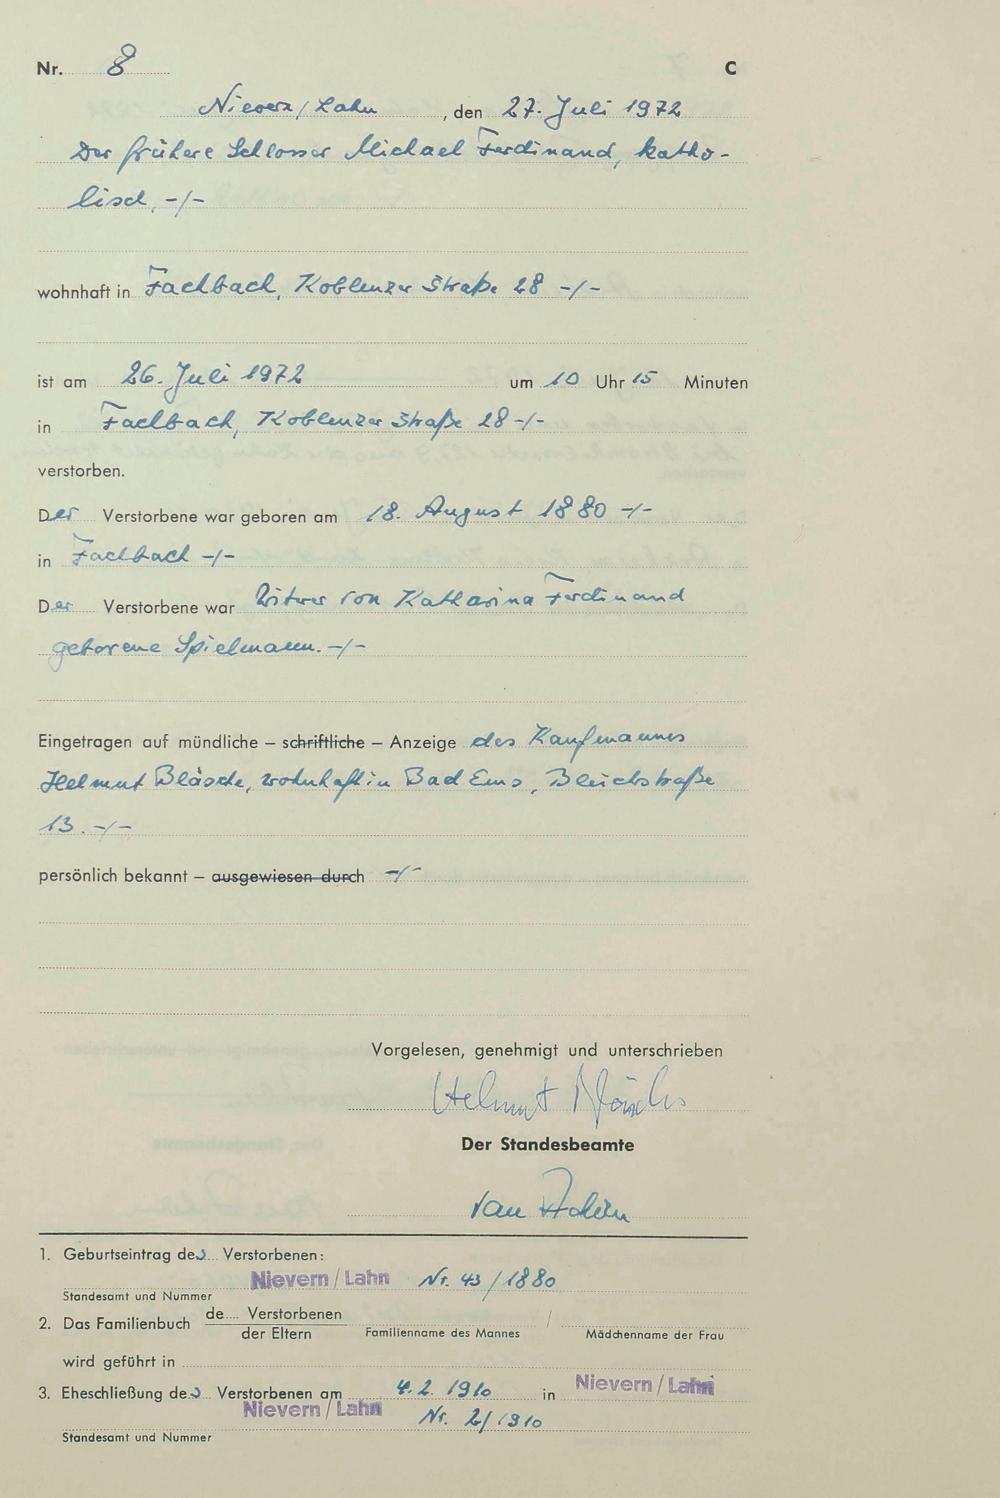 Nr. 8 C
Nievern/Lahn, den 27. Juli 1972
Der frühere Schlosser Michael Ferdinand, katho-
lisch, -/-
wohnhaft in Fachbach, Koblenzer Straße 28 -/-
ist am 26. Juli 1972 um 10 Uhr 15 Minuten
in Fachbach, Koblenzer Straße 28 -/-
verstorben.
Der Verstorbene war geboren am 18. August 1880 -/-
in Fachbach -/-
Der Verstorbene war Witwer von Katharina Ferdinand
geborene Spielmann. -/-
Eingetragen auf mündliche – schriftliche – Anzeige des Kaufmannes
Helmut Bläsche, wohnhaft in Bad Ems, Bleichstraße
13. -/-
persönlich bekannt – ausgewiesen durch -/-
Vorgelesen, genehmigt und unterschrieben
Helmut Bläsche
Der Standesbeamte
1. Geburtseintrag des Verstorbenen:
Nievern/Lahn Nr. 43/1880
Standesamt und Nummer
2. Das Familienbuch de.... Verstorbenen /
der Eltern Familienname des Mannes Mädchenname der Frau
wird geführt in
3. Eheschließung des Verstorbenen am 4.2.1910 in Nievern/Lahn
Nievern/Lahn Nr. 2/1910
Standesamt und Nummer